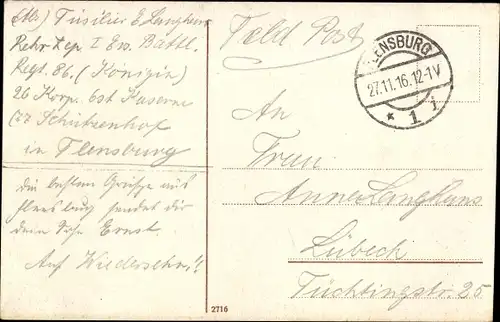 Abs) Füsilier E. Langhans
Rekr. Dep. I Ers. Battl.
Regt. 86. (Königin)
26 Korp. 6st Kaserne
(zz Schützenhof
in Flensburg
die besten Grüße aus
Flensburg sendet dir
dein Sohn Ernst.
Auf Wiedersehn!!
Feld Post
FLENSBURG
27.11.16.12-1V
* 1 i
An
Frau
Anna Langhans
Lübeck
Füchtingstr. 25
2716